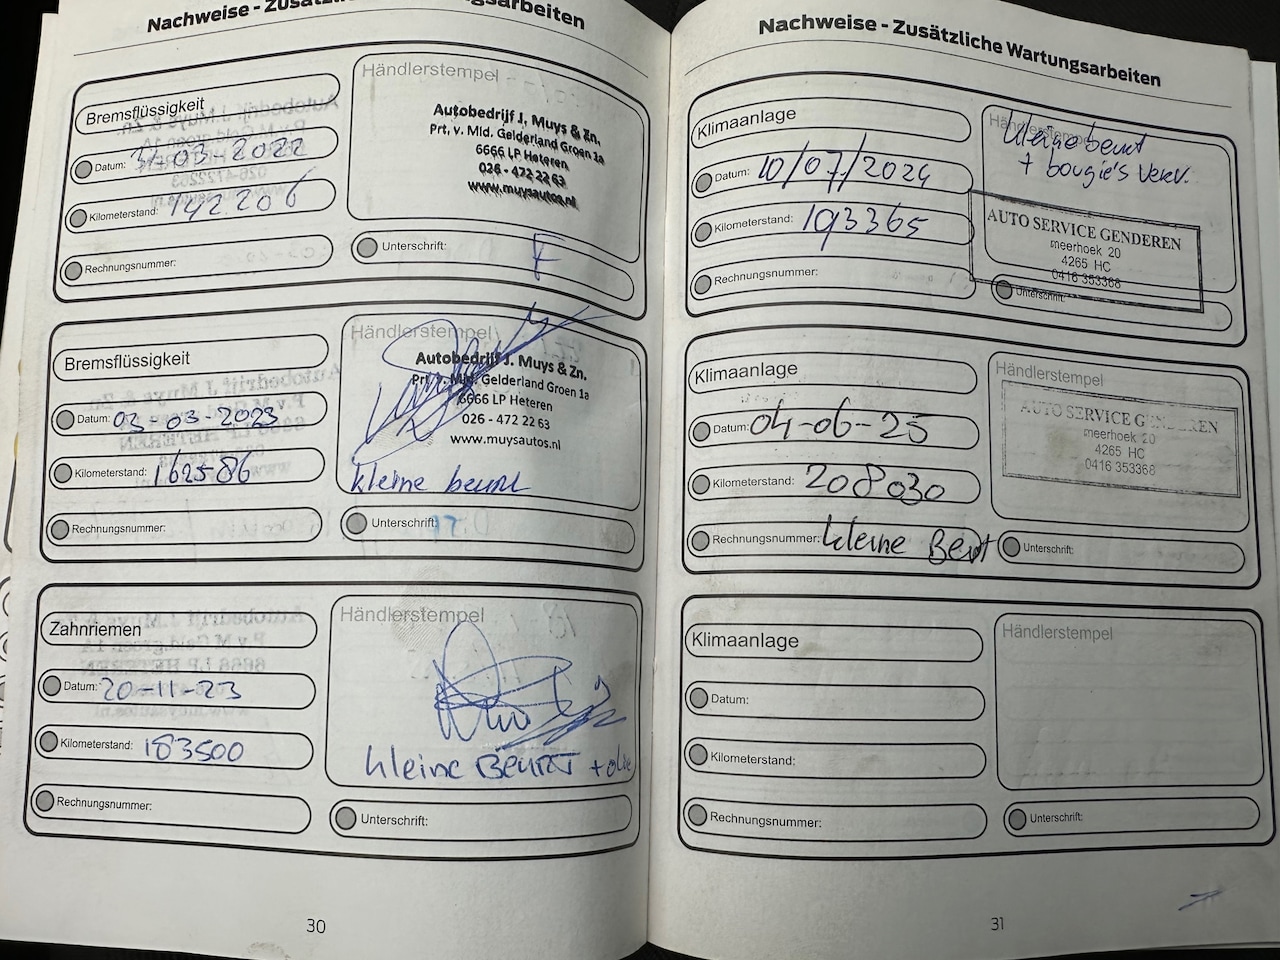 Nachweise - Zusätzliche Wartungsarbeiten
Bremsflüssigkeit
Datum: 31-03-2022
Kilometerstand: 142.206
Rechnungsnummer:
Händlerstempel
Autobedrijf J. Muys & Zn.
Prt. v. Mld. Gelderland Groen 1a
6666 LP Heteren
026 - 472 22 63
www.muysautos.nl
Unterschrift:
Bremsflüssigkeit
Datum: 03-03-2023
Kilometerstand: 162586
Rechnungsnummer:
Händlerstempel
Autobedrijf J. Muys & Zn.
Prt. v. Mld. Gelderland Groen 1a
6666 LP Heteren
026 - 472 22 63
www.muysautos.nl
kleine beurt
Unterschrift:
Zahnriemen
Datum: 20-11-23
Kilometerstand: 183500
Rechnungsnummer:
Händlerstempel
kleine BEURT + olie
Unterschrift:
30
Nachweise - Zusätzliche Wartungsarbeiten
Klimaanlage
Datum: 10/07/2024
Kilometerstand: 193365
Rechnungsnummer:
Händlerstempel
kleine beurt
+ bougie's verv.
AUTO SERVICE GENDEREN
meerhoek 20
4265 HC
0416 353368
Unterschrift:
Klimaanlage
Datum: 04-06-25
Kilometerstand: 208030
Rechnungsnummer: kleine Beurt
Händlerstempel
AUTO SERVICE GENDEREN
meerhoek 20
4265 HC
0416 353368
Unterschrift:
Klimaanlage
Datum:
Kilometerstand:
Rechnungsnummer:
Händlerstempel
Unterschrift:
31